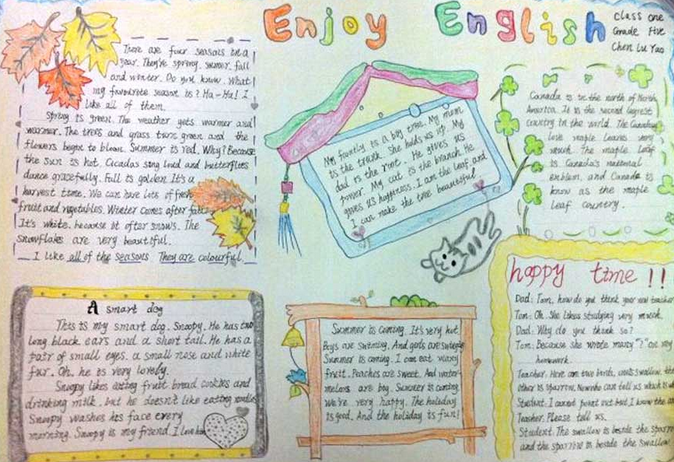 Enjoy English
Class one
Grade Five
Chen Lu Yao
There are four seasons in a
year. They're spring, summer, fall
and winter. Do you know. What
my favourite season is? Ha-Ha! I
like all of them.
Spring is green. The weather gets warmer and
warmer. The trees and grass turns green and the
flowers begin to bloom. Summer is red. Why? Because
the sun is hot. Cicadas sing loud and butterflies
dance gracefully. Fall is golden. It's a
harvest time. We can have lots of fresh
fruit and vegetables. Winter comes after fall.
It's white. because it after snows. The
snowflakes are very beautiful.
I like all of the seasons They are colourful.
My family is a big tree. My mum
is the trunk. She holds us up. My
dad is the root. He gives us
power. My cat is the branch. He
gives us happiness. I am the leaf and
I can make the tree beautiful.
Canada is in the north of North
America. It is the second largest
country in the world. The Canadians
love maple leaves very
much. The maple leaf
is Canada's national
emblem, and Canada is
know as the maple
leaf country.
A smart dog
This is my smart dog. Snoopy. He has two
long black ears and a short tail. He has a
pair of small eyes. a small nose and white
fur. Oh, he is very lovely.
Snoopy likes eating fruit bread cookies and
drinking milk. but he doesn't like eating noodles
Snoopy washes his face every
morning. Snoopy is my friend. I love him
Summer is coming. It's very hot.
Boys are swimming. And girls are
Summer is coming. I can eat many
fruit. Peaches are sweet. And water-
melons are big. Summer is coming.
We're very happy. The holiday
is good. And the holiday is fun!
happy time !!
Dad: Tom, how do you think your new teacher
Tom: Oh. She likes studying very much.
Dad: Why do you think so?
Tom: Because she wrote many "?" on my
homework.
Teacher: Here are two birds, one is swallow. the
other is sparrow. Now who can tell us which is
Student. I cannot point out but I know the
Teacher. Please tell us.
Student. The swallow is beside the sparrow
and the sparrow is beside the swallow.